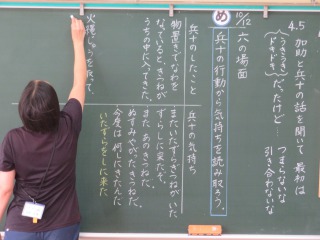 4.5
加助と兵十の話を聞いて、最初は
うきうき
どきどき
だったけど…
つまらないな
引き合わないな
10/12
め
六の場面
兵十の行動から気持ちを読み取ろう。
兵十のしたこと
兵十の気持ち
物置きでなわを
なっていると、きつねが
うちの中に入ってきた。
またいたずらぎつねがいた
ずらしに来たぞ。
また、あのきつねだ。
ぬすみやがったきつねだ。
今度は、何しにきたんだ
いたずらをしに来た
火縄じゅうを取って、